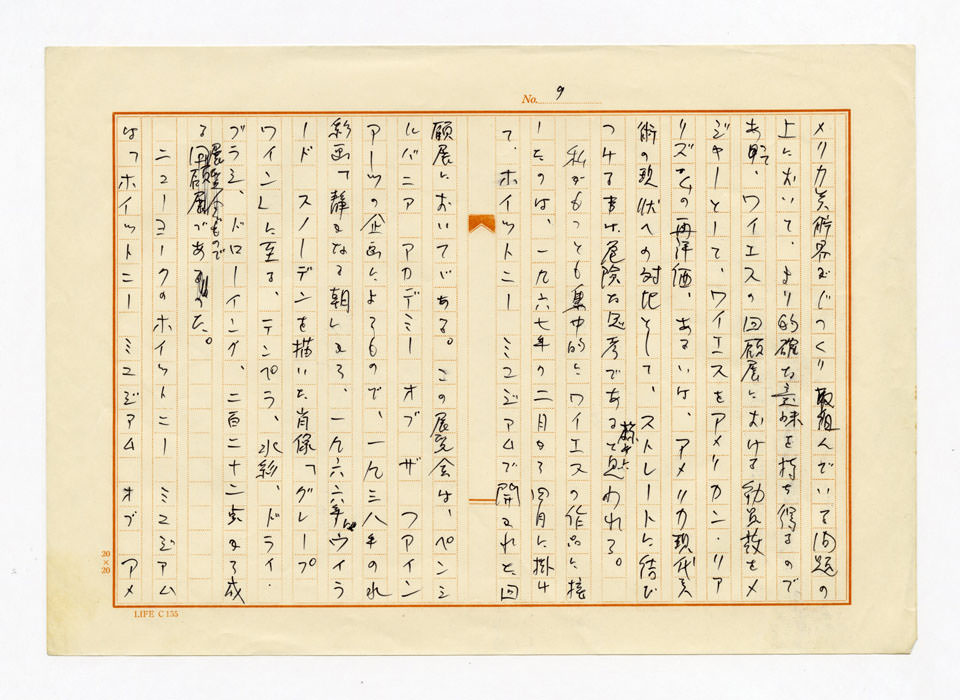 No. 9
メリカ美術界がじっくり取組んでいる問題の
上において、より的確な意味を持ち得るので
あって、ワイエスの回顧展における動員数をメ
ジャーとして、ワイエスをアメリカン・リア
リズムの再評価、あるいは、アメリカ現代美
術の現状への対比として、ストレートに結び
つけるのは危険な思考であると思われる。
私がもっとも集中的にワイエスの作品に接
したのは、一九六七年の二月から四月に掛け
て、ホイットニー ミュジアムで開かれた回
顧展においてである。この展覧会は、ペンシ
ルバニア アカデミー オブ ザ ファイン
アーツの企画によるもので、一九三八年の水
彩画「静かなる朝」から、一九六六年にウィラ
ード スノーデンを描いた肖像「グレープ
ワイン」に至る、テンペラ、水彩、ドライ・
ブラシ、ドローイング、二百二十二点から成
る展覧会で
回顧展であった。
ニューヨークのホイットニー ミュジアム
は「ホイットニー ミュジアム オブ アメ
20×20
LIFE C155